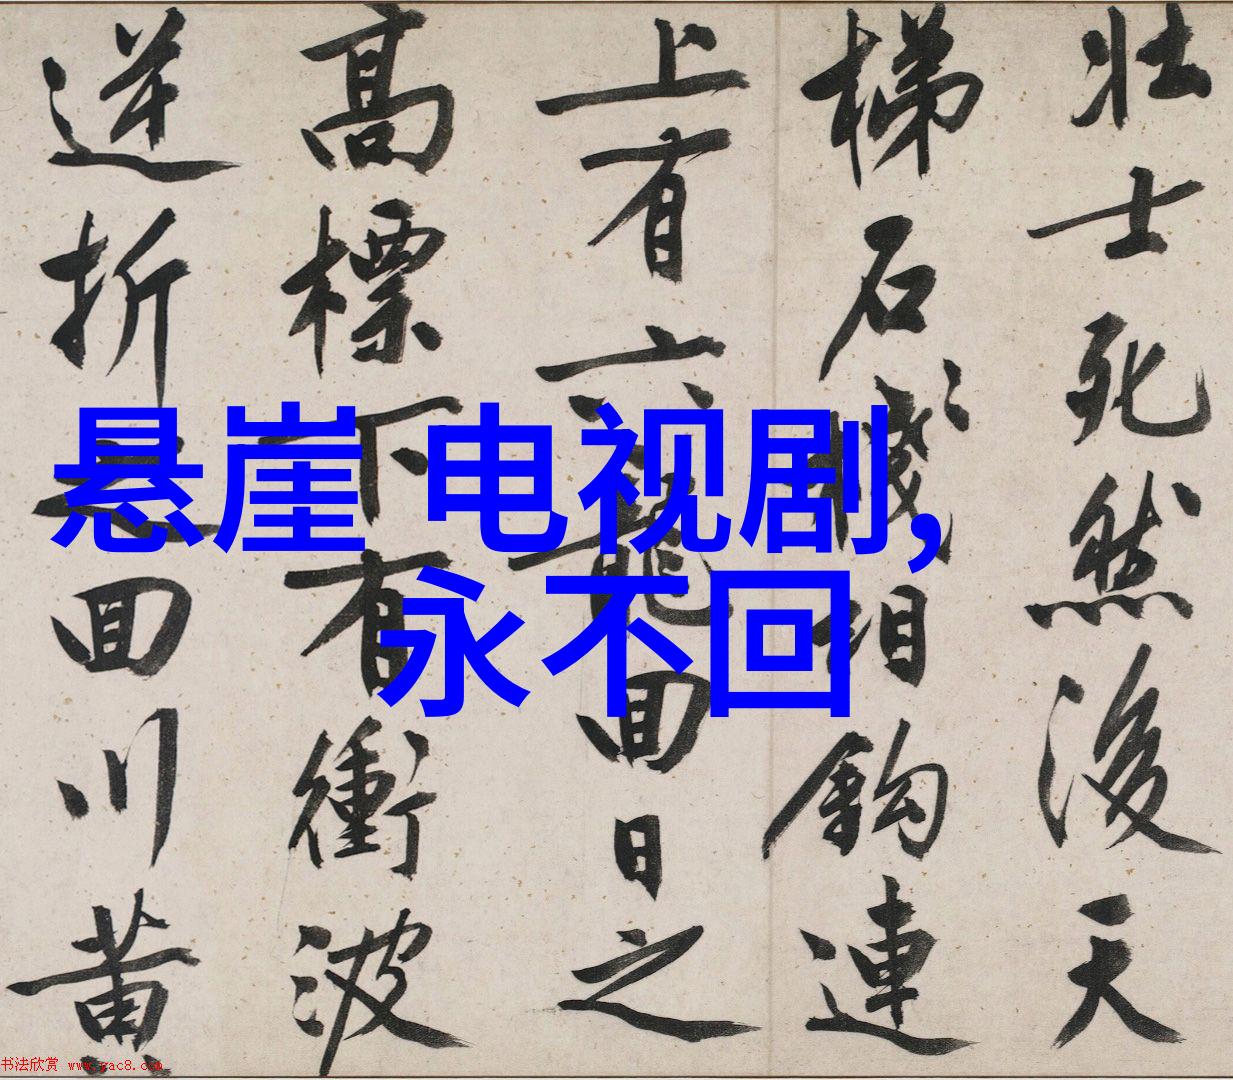 壮士死然後天
梯石棧相鈎連
上有六龍回日之
高標下有衝波
逆折之回川黄
悬崖 电视剧,
永不回
书法欣赏 www.yac8.com